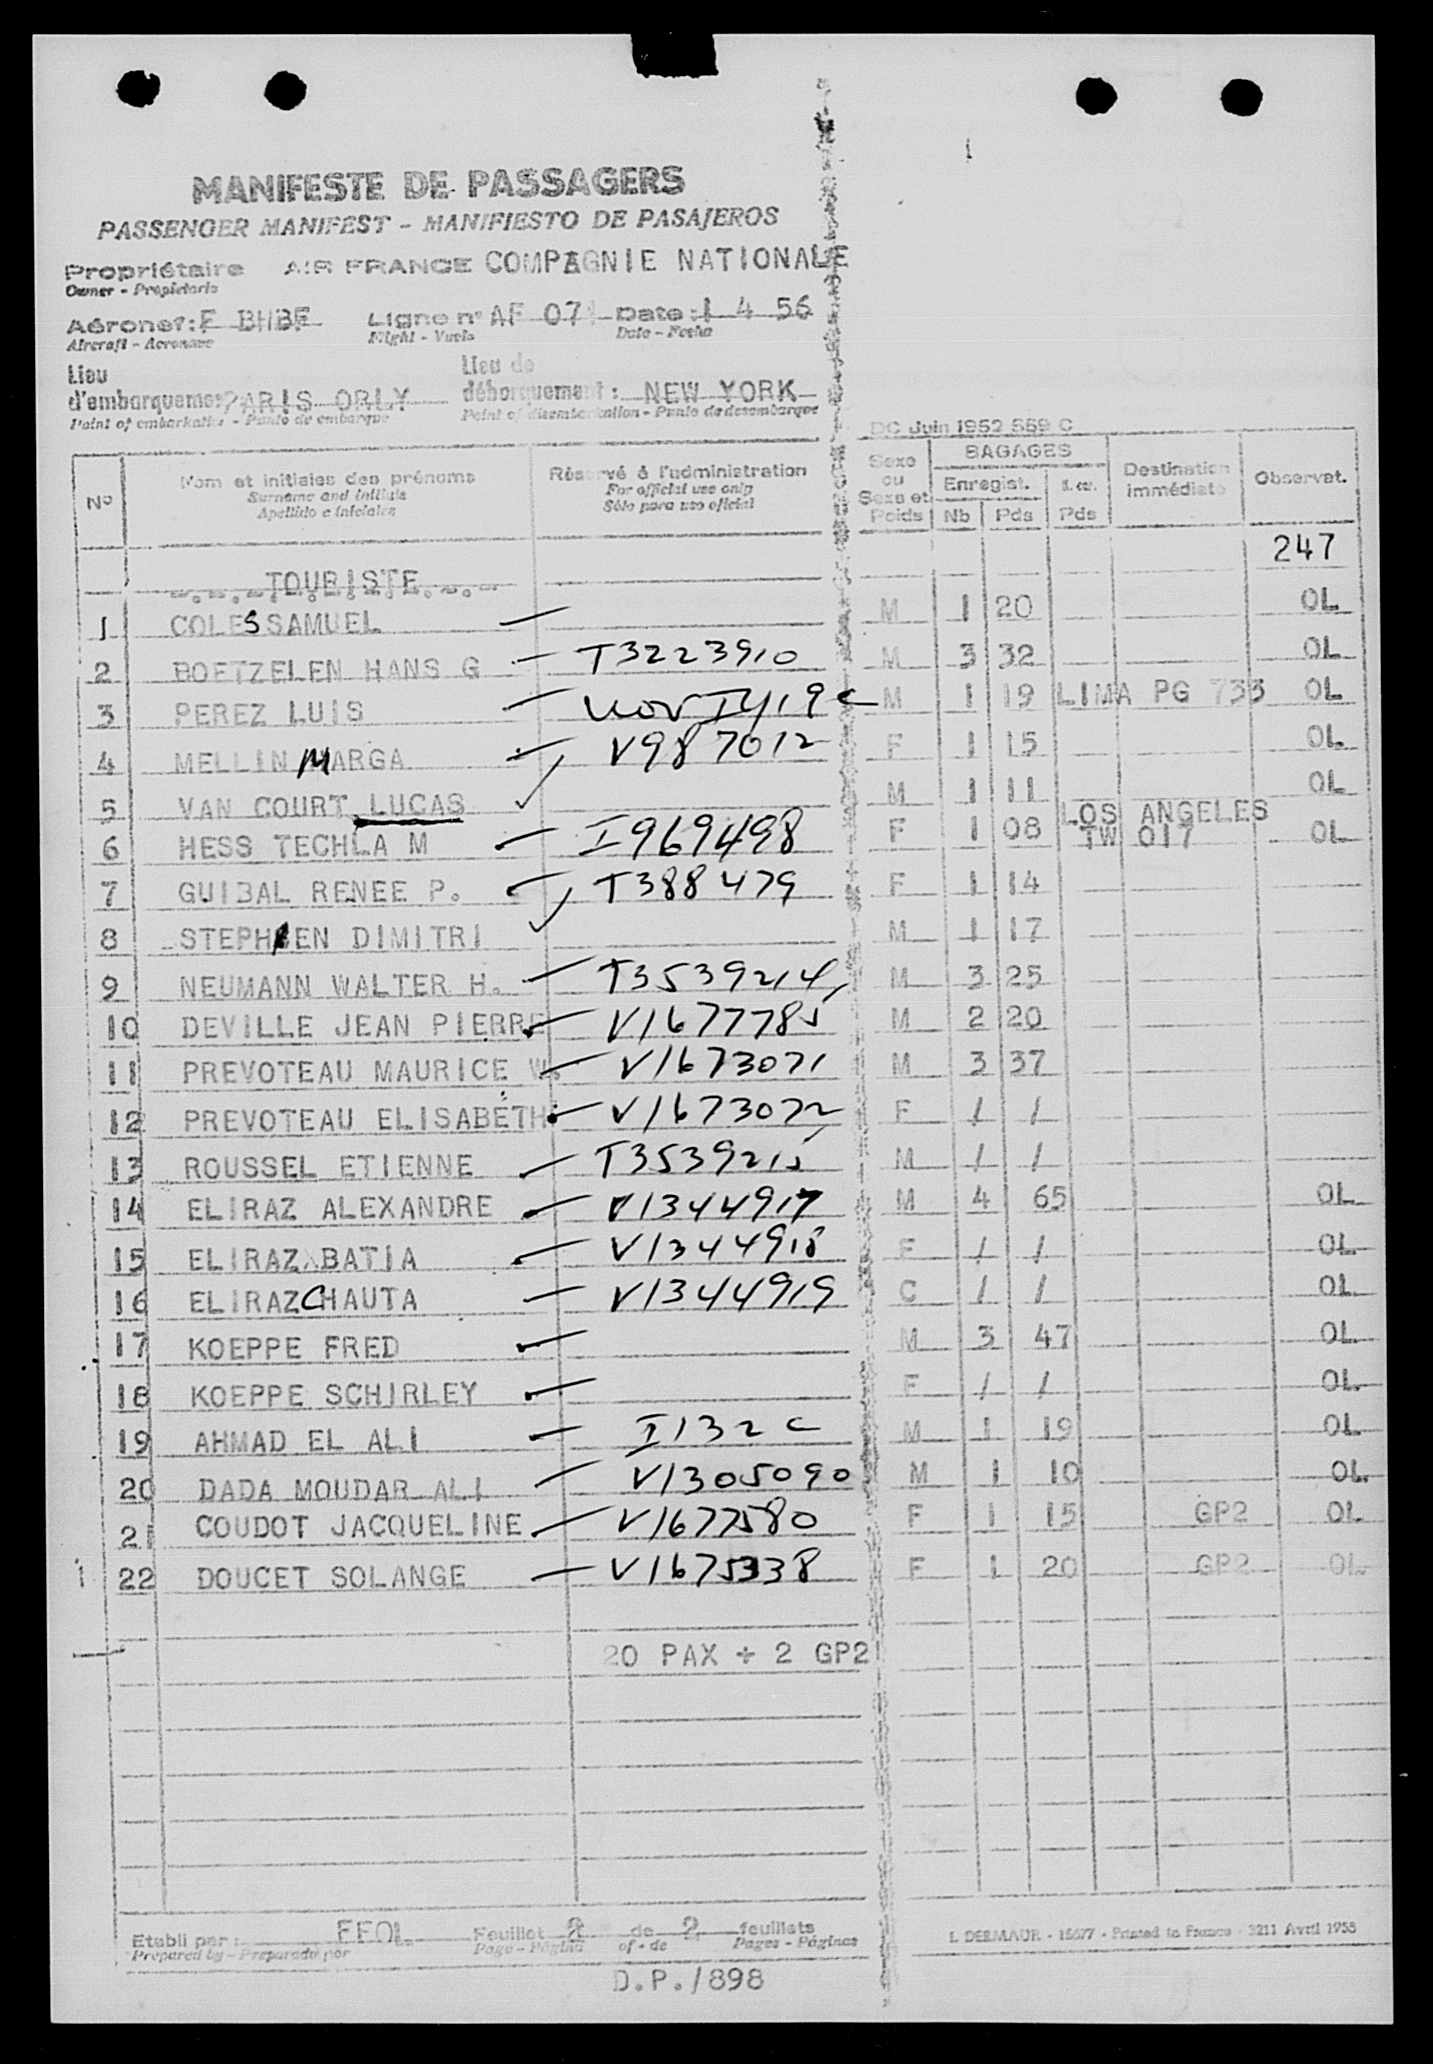 MANIFESTE DE PASSAGERS
PASSENGER MANIFEST - MANIFIESTO DE PASAJEROS
Propriétaire AIR FRANCE COMPAGNIE NATIONALE
Owner - Propietario
Aéronef: F BHBF Ligne n° AF 07 Date: 1 4 56
Aircraft - Aeronave Flight - Vuelo Date - Fecha
Lieu d'embarqueme: PARIS ORLY Lieu de débarquement: NEW YORK
Point of embarkation - Punto de embarque Point of disembarkation - Punto de desembarque
DC Juin 1952 559 C
N° Nom et initiales des prénoms Réservé à l'administration Sexe ou Sexe et Poids BAGAGES Enregist. Nb Pds Pds Destination immédiate Observat.
Surname and initials For official use only
Apellido e iniciales Sólo para uso oficial
247
TOURISTE
1 COLES SAMUEL — M 1 20 OL
2 BOETZELEN HANS G — T3223910 M 3 32 OL
3 PEREZ LUIS — M 1 19 LIMA PG 733 OL
4 MELLIN MARGA — V987012 F 1 15 OL
5 VAN COURT LUCAS ✓ M 1 11 OL
6 HESS TECHLA M — I969498 F 1 08 LOS ANGELES TW 017 OL
7 GUIBAL RENEE P. — T388479 F 1 14
8 STEPHEN DIMITRI ✓ M 1 17
9 NEUMANN WALTER H. — T3539214 M 3 25
10 DEVILLE JEAN PIERRE — V1677785 M 2 20
11 PREVOTEAU MAURICE W. — V1673071 M 3 37
12 PREVOTEAU ELISABETH — V1673072 F / /
13 ROUSSEL ETIENNE — T3539215 M / /
14 ELIRAZ ALEXANDRE — V1344917 M 4 65 OL
15 ELIRAZ BATIA — V1344918 F / / OL
16 ELIRAZ CHAUTA — V1344919 C / / OL
17 KOEPPE FRED — M 3 47 OL
18 KOEPPE SCHIRLEY — F / / OL
19 AHMAD EL ALI — I132 C M 1 19 OL
20 DADA MOUDAR ALI — V1305090 M 1 10 OL
21 COUDOT JACQUELINE — V1677580 F 1 15 GP2 OL
22 DOUCET SOLANGE — V1675338 F 1 20 GP2 OL
20 PAX + 2 GP2
Etabli par: Feuillet 2 de 2 feuillets
Prepared by - Preparado por Page - Página of - de Pages - Páginas
I. DERMAUR - 15677 - Printed in France - 3211 Avril 1955
D.P./898